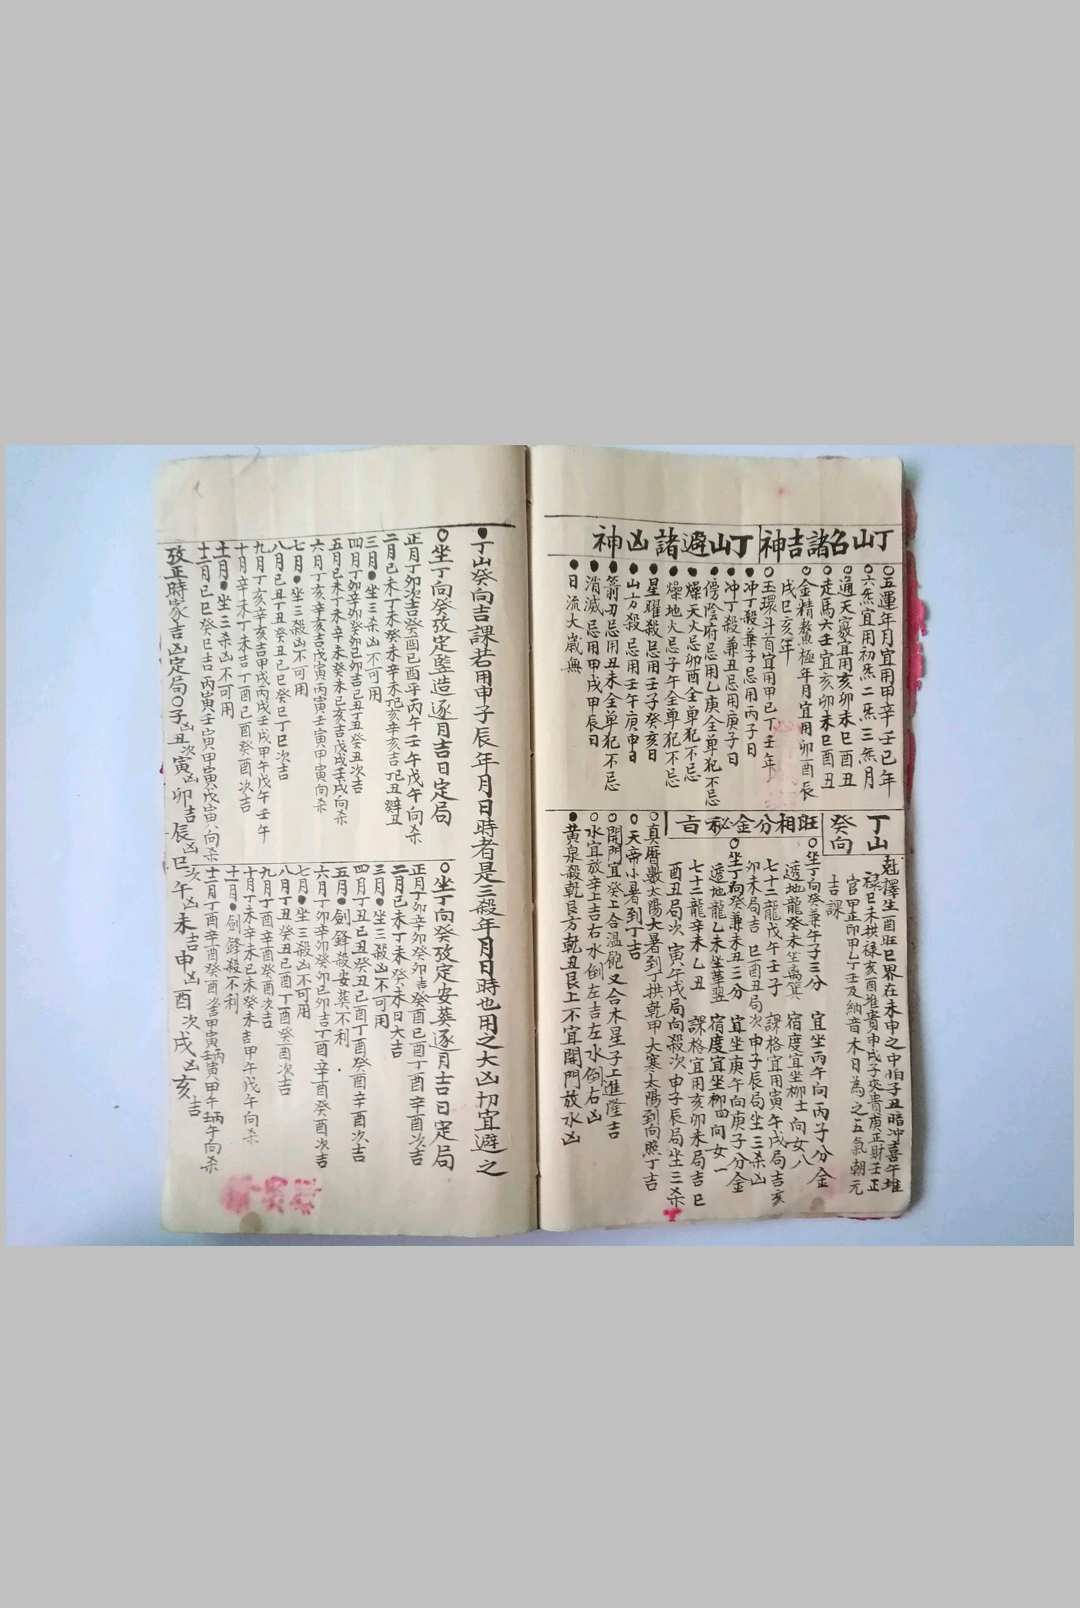 丁山名諸吉神
○五運年月宜用甲辛壬己年
○六炁宜用初炁二炁三炁月
○通天竅宜用亥卯未巳酉丑
○走馬六壬宜亥卯未巳酉丑
○金精鰲極年月宜用卯酉辰
戌巳亥年
○玉環斗首宜用甲己丁壬年
丁山避諸凶神
●冲丁殺兼子忌用丙子日
●冲丁殺兼丑忌用庚子日
●傍陰府忌用乙庚全單犯不忌
●燥天火忌卯酉全單犯不忌
●燥地火忌子午全單犯不忌
●星曜殺忌用壬子癸亥日
●山方殺忌用壬午庚申日
●箭刃忌用丑未全單犯不忌
●消滅忌用甲戌甲辰日
●日流大歲無
丁山
癸向
尅擇生酉旺巳界在未申之中怕子丑暗冲喜午堆
祿巳未拱祿亥酉堆貴申戌子夾貴庚正財壬正
官甲正印甲乙丁壬及納音木日為之五氣朝元
吉課
旺相分金秘旨
○坐丁向癸兼午子三分 宜坐丙午向丙子分金
透地龍癸未坐 宿度宜坐柳土向女八
七十二龍戊午壬子 課格宜用寅午戌局吉亥
卯未局吉巳酉丑局次申子辰局坐三杀凶
○坐丁向癸兼未丑三分 宜坐庚午向庚子分金
透地龍乙未坐 宿度宜坐柳四向女一
七十二龍辛未乙丑 課格宜用亥卯未局吉巳
酉丑局次 寅午戌局向殺次申子辰局坐三杀
○真曆數太陽大暑到丁拱乾甲大寒太陽到向照丁吉
○天帝小暑到丁吉
○開門宜癸上合溫 又合木星子上進隆吉
○水宜放辛上吉右水倒左吉左水倒右凶
●黃泉殺乾艮方乾丑艮上不宜開門放水凶
●丁山癸向吉課若用申子辰年月日時者是三殺年月日時也用之大凶切宜避之
○坐丁向癸攷定豎造逐月吉日定局
正月丁卯次吉癸酉己酉辛丙午壬午戊午向杀
二月己未丁未癸未辛未 亥辛亥吉 丑 丑
三月●坐三杀凶不可用
四月丁卯辛卯癸卯己卯吉己丑丁丑癸丑次吉
五月己未丁未辛未癸未己亥吉戊戌壬戌向杀
六月丁亥辛亥吉戊寅丙寅壬寅甲寅向杀
七月●坐三殺凶不可用
八月己丑丁丑癸丑己巳癸巳丁巳次吉
九月丁亥辛亥吉甲戌丙戌壬戌甲午戊午壬午
十月辛未丁未吉丁酉己酉癸酉次吉
十一月●坐三杀凶不可用
十二月己巳癸巳吉丙寅壬寅甲寅戊寅向杀
○坐丁向癸攷定安葬逐月吉日定局
正月丁卯辛卯癸卯吉癸酉己酉丁酉辛酉次吉
二月己未丁未癸未日大吉
三月●坐三殺凶不可用
四月丁丑己丑癸丑己酉丁酉癸酉辛酉次吉
五月●劍鋒殺安葬不利
六月丁卯辛卯癸卯己卯吉丁酉辛酉癸酉次吉
七月●坐三殺凶不可用
八月丁丑癸丑己酉丁酉癸酉次吉
九月丁酉辛酉癸酉次吉
十月丁未辛未己未癸未吉甲午戊午向杀
十一月●劍鋒殺不利
十二月丁酉辛酉癸酉 甲寅壬寅 寅甲午壬午 午向杀
攷正時家吉凶定局○子凶丑次寅凶卯吉辰凶巳次午凶未吉申凶酉次戌凶亥吉